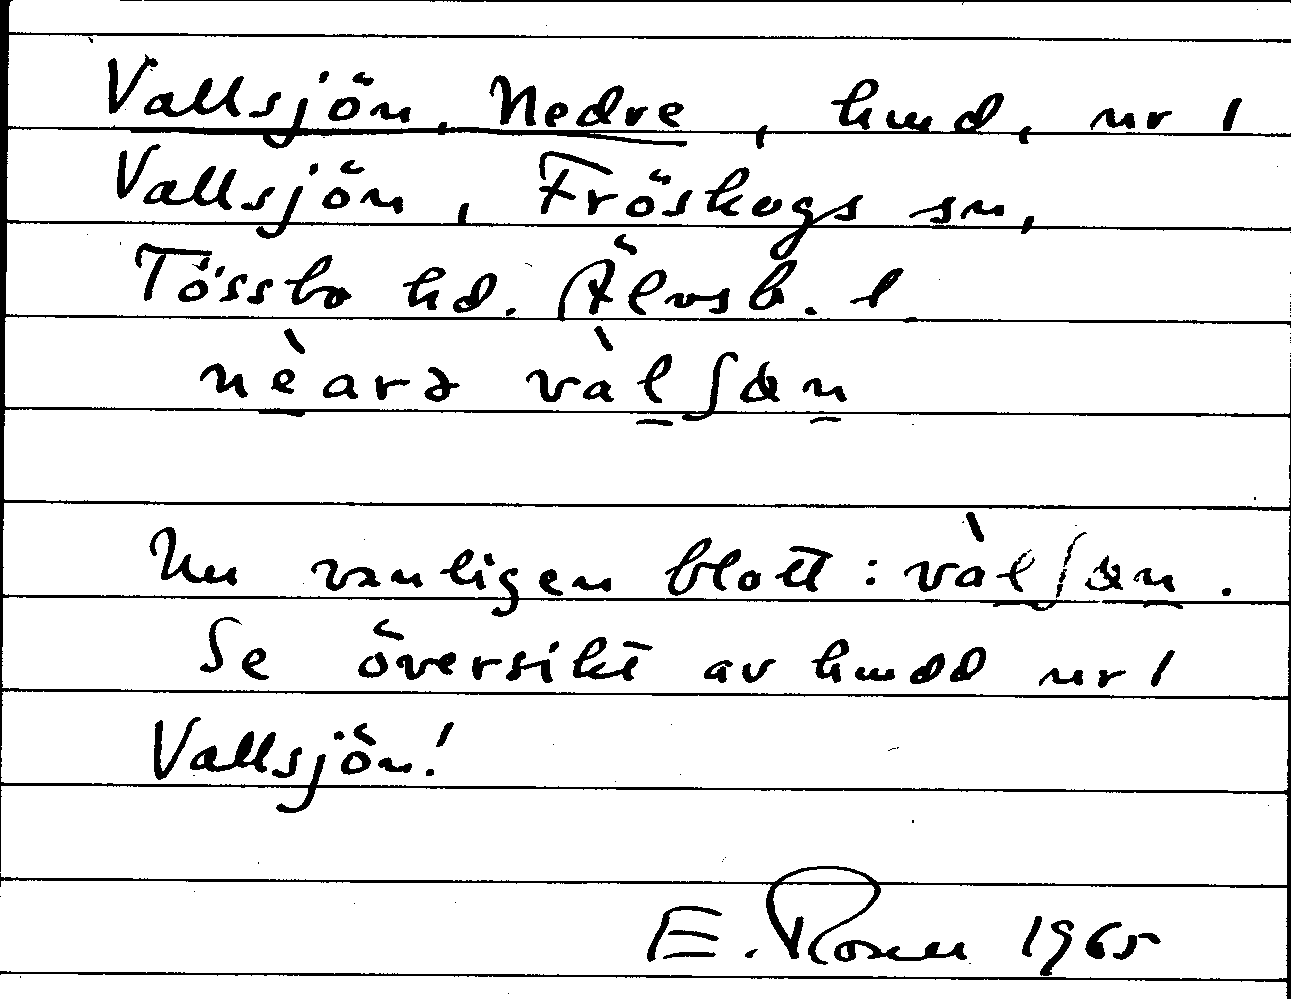 Vallsjön, Nedre, hmd, nr 1
Vallsjön, Fröskogs sn,
Tössbo hd. Älvsb. l.
nèarə vàlʃαn
Nu vanligen blott: vàlʃαn.
Se översikt av hmdd nr 1
Vallsjön!
E. Rosen 1965